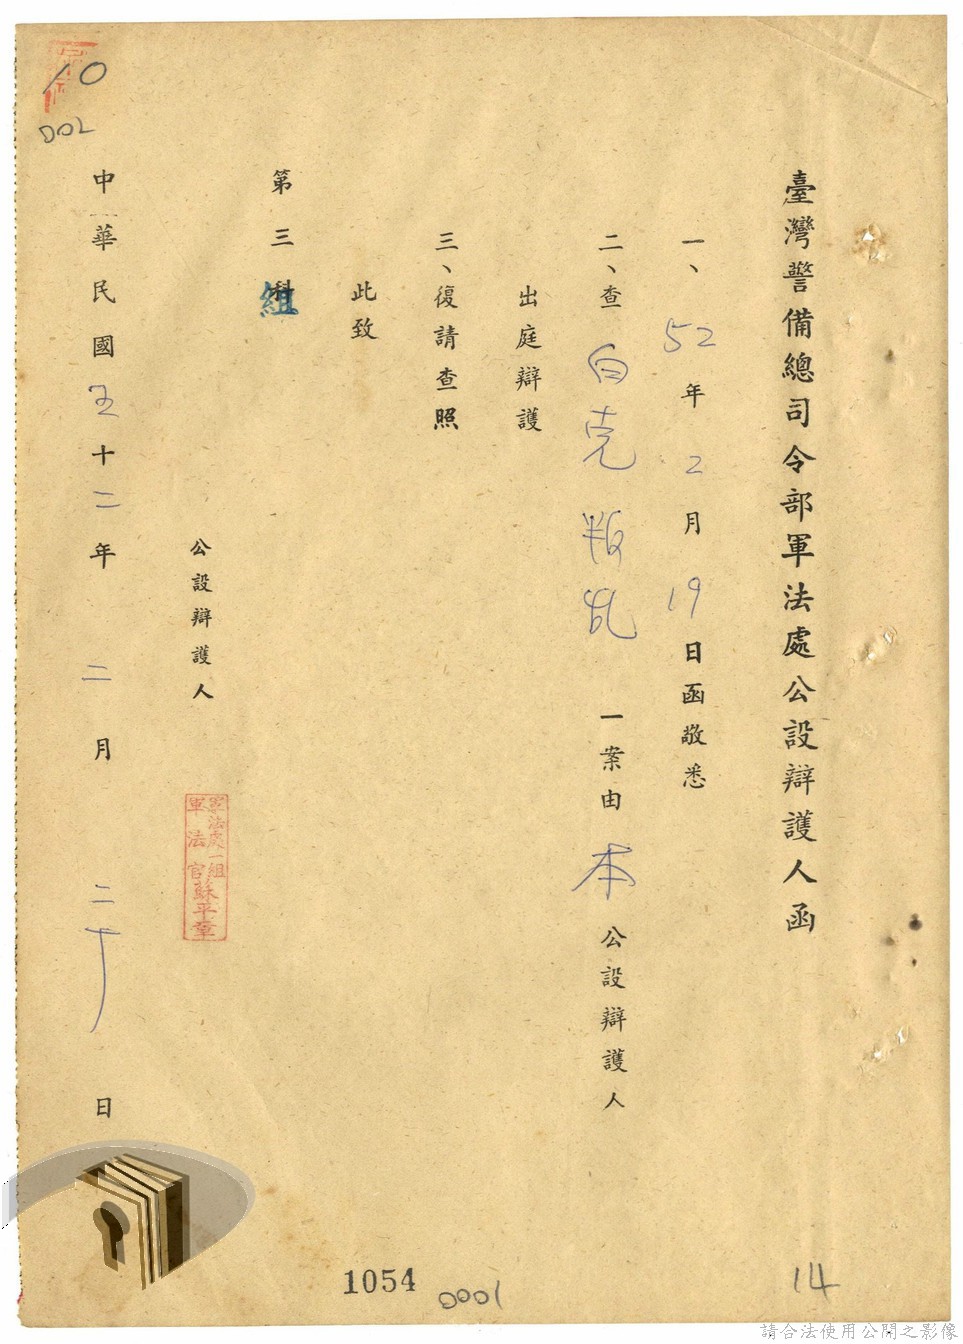 臺灣警備總司令部軍法處公設辯護人函
一、52年2月19日函敬悉
二、查白克叛乱一案由本公設辯護人
出庭辯護
三、復請查照
此致
第三組
公設辯護人
軍法處一組
軍法官蘇平章
中華民國五十二年二月二十日
10
002
1054
0001
14
請合法使用公開之影像